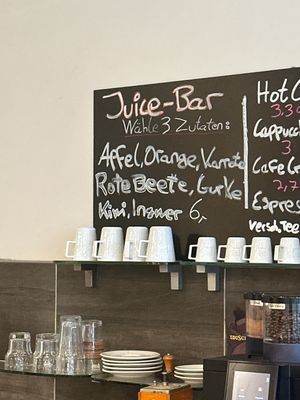 Juice-Bar
Wähle 3 Zutaten:
Apfel, Orange, Karotte
Rote Beete, Gurke
Kiwi, Ingwer 6,-
Hot C
3,3
Cappucc
3
Cafe Cr
2,7
Espres
versch. Tee